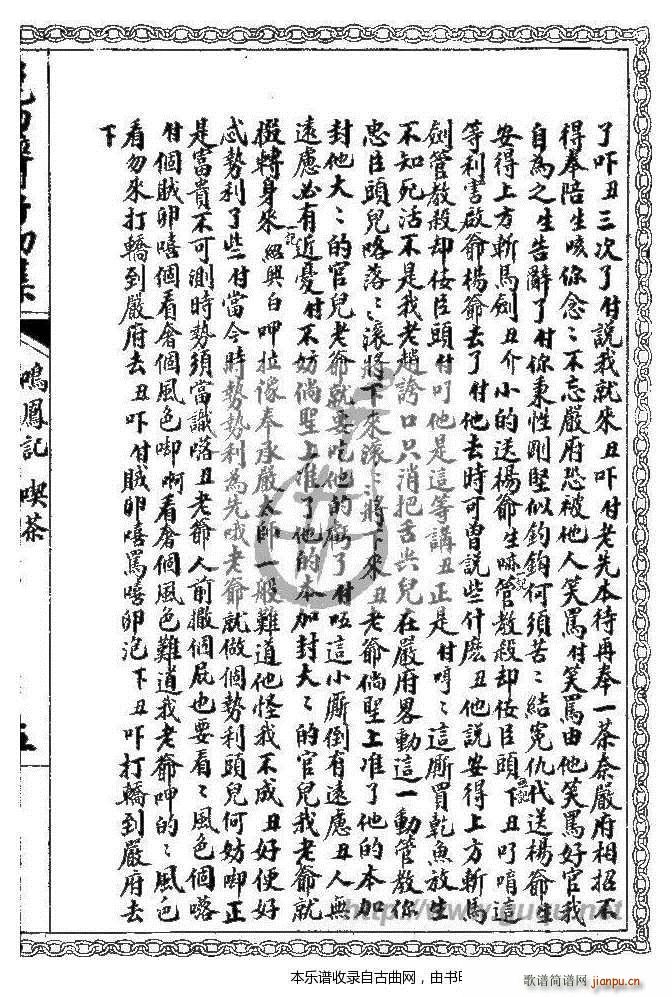 了吓丑三次了付説我就來丑吓付老先本待再奉一茶奈嚴府相招不
得奉陪生咳你念〻不忘嚴府恐被他人笑罵付笑罵由他笑罵好官我
自為之生告辭了付你秉性剛堅似鈎何須苦〻結冤仇代送楊爺生
安得上方斬馬劍丑介小的送楊爺生嘛管教殺却佞臣頭下丑叮唷這
等利害啟爺楊爺去了付他去時可曾説些什麽丑他説安得上方斬馬
劍管教殺却佞臣頭付叮他是這等講丑正是付哼〻這厮買乾魚放生
不知死活不是我老趙誇口只消把舌尖兒在嚴府畧動這一動管教你
忠臣頭兒咯落〻滚將下來滚〻將下來丑老爺倘聖上准了他的本加
封他大〻的官兒老爺就要吃他的虧了付㕶這小厮倒有遠慮丑人無
遠慮必有近憂付不妨倘聖上准了他的本加封大〻的官兒我老爺就
掇轉身來紹興白呷拉像奉承嚴太師一般難道他怪我不成丑好便好
忒勢利了些付當今時勢勢利為先哦老爺就做個勢利頭兒何妨唧正
是富貴不可測時勢須當識咯丑老爺人前撒個屁也要看〻風色個咯
付個賊卵嘻個看奢個風色唧啊看奢個風色難道我老爺呷的〻風色
看勿來打轎到嚴府去丑吓付賊卵嘻罵嘻卵泡下丑吓打轎到嚴府去
下
鳴鳳記 喫茶
五
http://www.guqu.net
本乐谱收录自古曲网，由书
歌谱简谱网
jianpu.cn